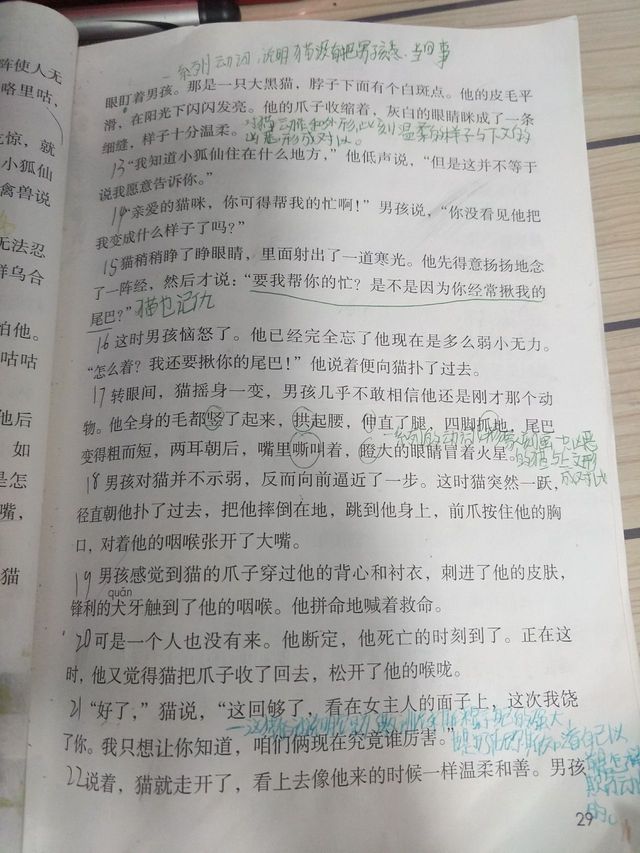 阵使人无
咯里咕，
吃惊，就
小狐仙
禽兽说
无法忍
样乌合
怕他。
咕咕
他后
如
是怎
嘴，
猫
一系列动词，说明猫没有把男孩
当回事
眼盯着男孩。那是一只大黑猫，脖子下面有个白斑点。他的皮毛平
滑，在阳光下闪闪发亮。他的爪子收缩着，灰白的眼睛眯成了一条
细缝，样子十分温柔。
对猫动作和外形
温柔的样子与下文的
凶恶形成对比。
13 “我知道小狐仙住在什么地方，”他低声说，“但是这并不等于
说我愿意告诉你。”
14 “亲爱的猫咪，你可得帮我的忙啊！”男孩说，“你没看见他把
我变成什么样子了吗？”
15 猫稍稍睁了睁眼睛，里面射出了一道寒光。他先得意扬扬地念
了一阵经，然后才说：“要我帮你的忙？是不是因为你经常揪我的
尾巴？”
猫也记仇
16 这时男孩恼怒了。他已经完全忘了他现在是多么弱小无力。
“怎么着？我还要揪你的尾巴！”他说着便向猫扑了过去。
17 转眼间，猫摇身一变，男孩几乎不敢相信他还是刚才那个动
物。他全身的毛都竖了起来，拱起腰，伸直了腿，四脚抓地，尾巴
变得粗而短，两耳朝后，嘴里嘶叫着，瞪大的眼睛冒着火星。
一系列的动词
的猫与上文形
成对比
18 男孩对猫并不示弱，反而向前逼近了一步。这时猫突然一跃，
径直朝他扑了过去，把他摔倒在地，跳到他身上，前爪按住他的胸
口，对着他的咽喉张开了大嘴。
19 男孩感觉到猫的爪子穿过他的背心和衬衣，刺进了他的皮肤，
quǎn
锋利的犬牙触到了他的咽喉。他拼命地喊着救命。
20 可是一个人也没有来。他断定，他死亡的时刻到了。正在这
时，他又觉得猫把爪子收了回去，松开了他的喉咙。
21 “好了，”猫说，“这回够了，看在女主人的面子上，这次我饶
了你。我只想让你知道，咱们俩现在究竟谁厉害。”
自己以
22 说着，猫就走开了，看上去像他来的时候一样温柔和善。男孩
的。
29